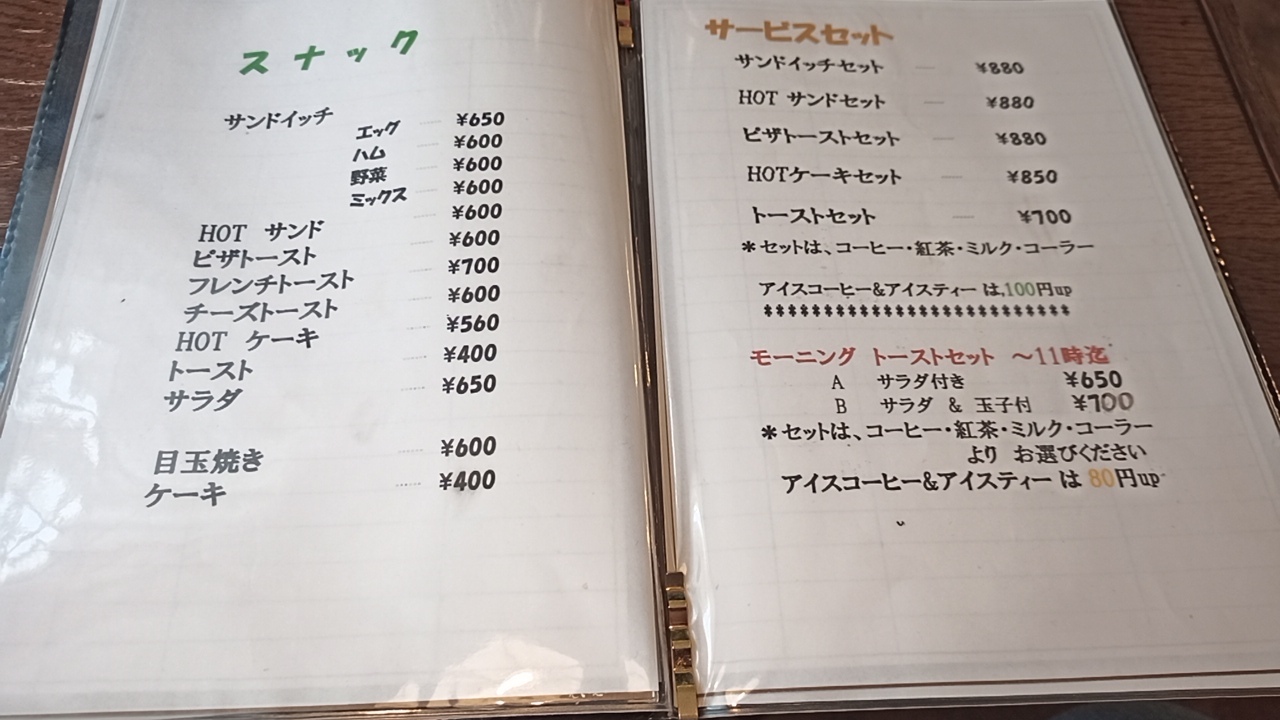 スナック
サンドイッチ
エッグ ¥650
ハム ¥600
野菜 ¥600
ミックス ¥600
HOT サンド ¥600
ピザトースト ¥600
フレンチトースト ¥700
チーズトースト ¥600
HOT ケーキ ¥560
トースト ¥400
サラダ ¥650
目玉焼き ¥600
ケーキ ¥400
サービスセット
サンドイッチセット ¥880
HOT サンドセット ¥880
ピザトーストセット ¥880
HOTケーキセット ¥850
トーストセット ¥700
*セットは、コーヒー・紅茶・ミルク・コーラー
アイスコーヒー&アイスティー は,100円up
モーニング トーストセット ～11時迄
A サラダ付き ¥650
B サラダ & 玉子付 ¥700
*セットは、コーヒー・紅茶・ミルク・コーラー
より お選びください
アイスコーヒー&アイスティー は 80円up